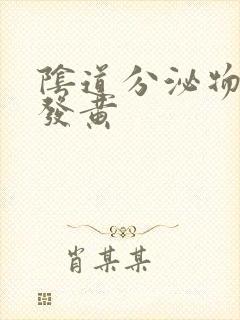 陰道分泌物
發黃
肖某某